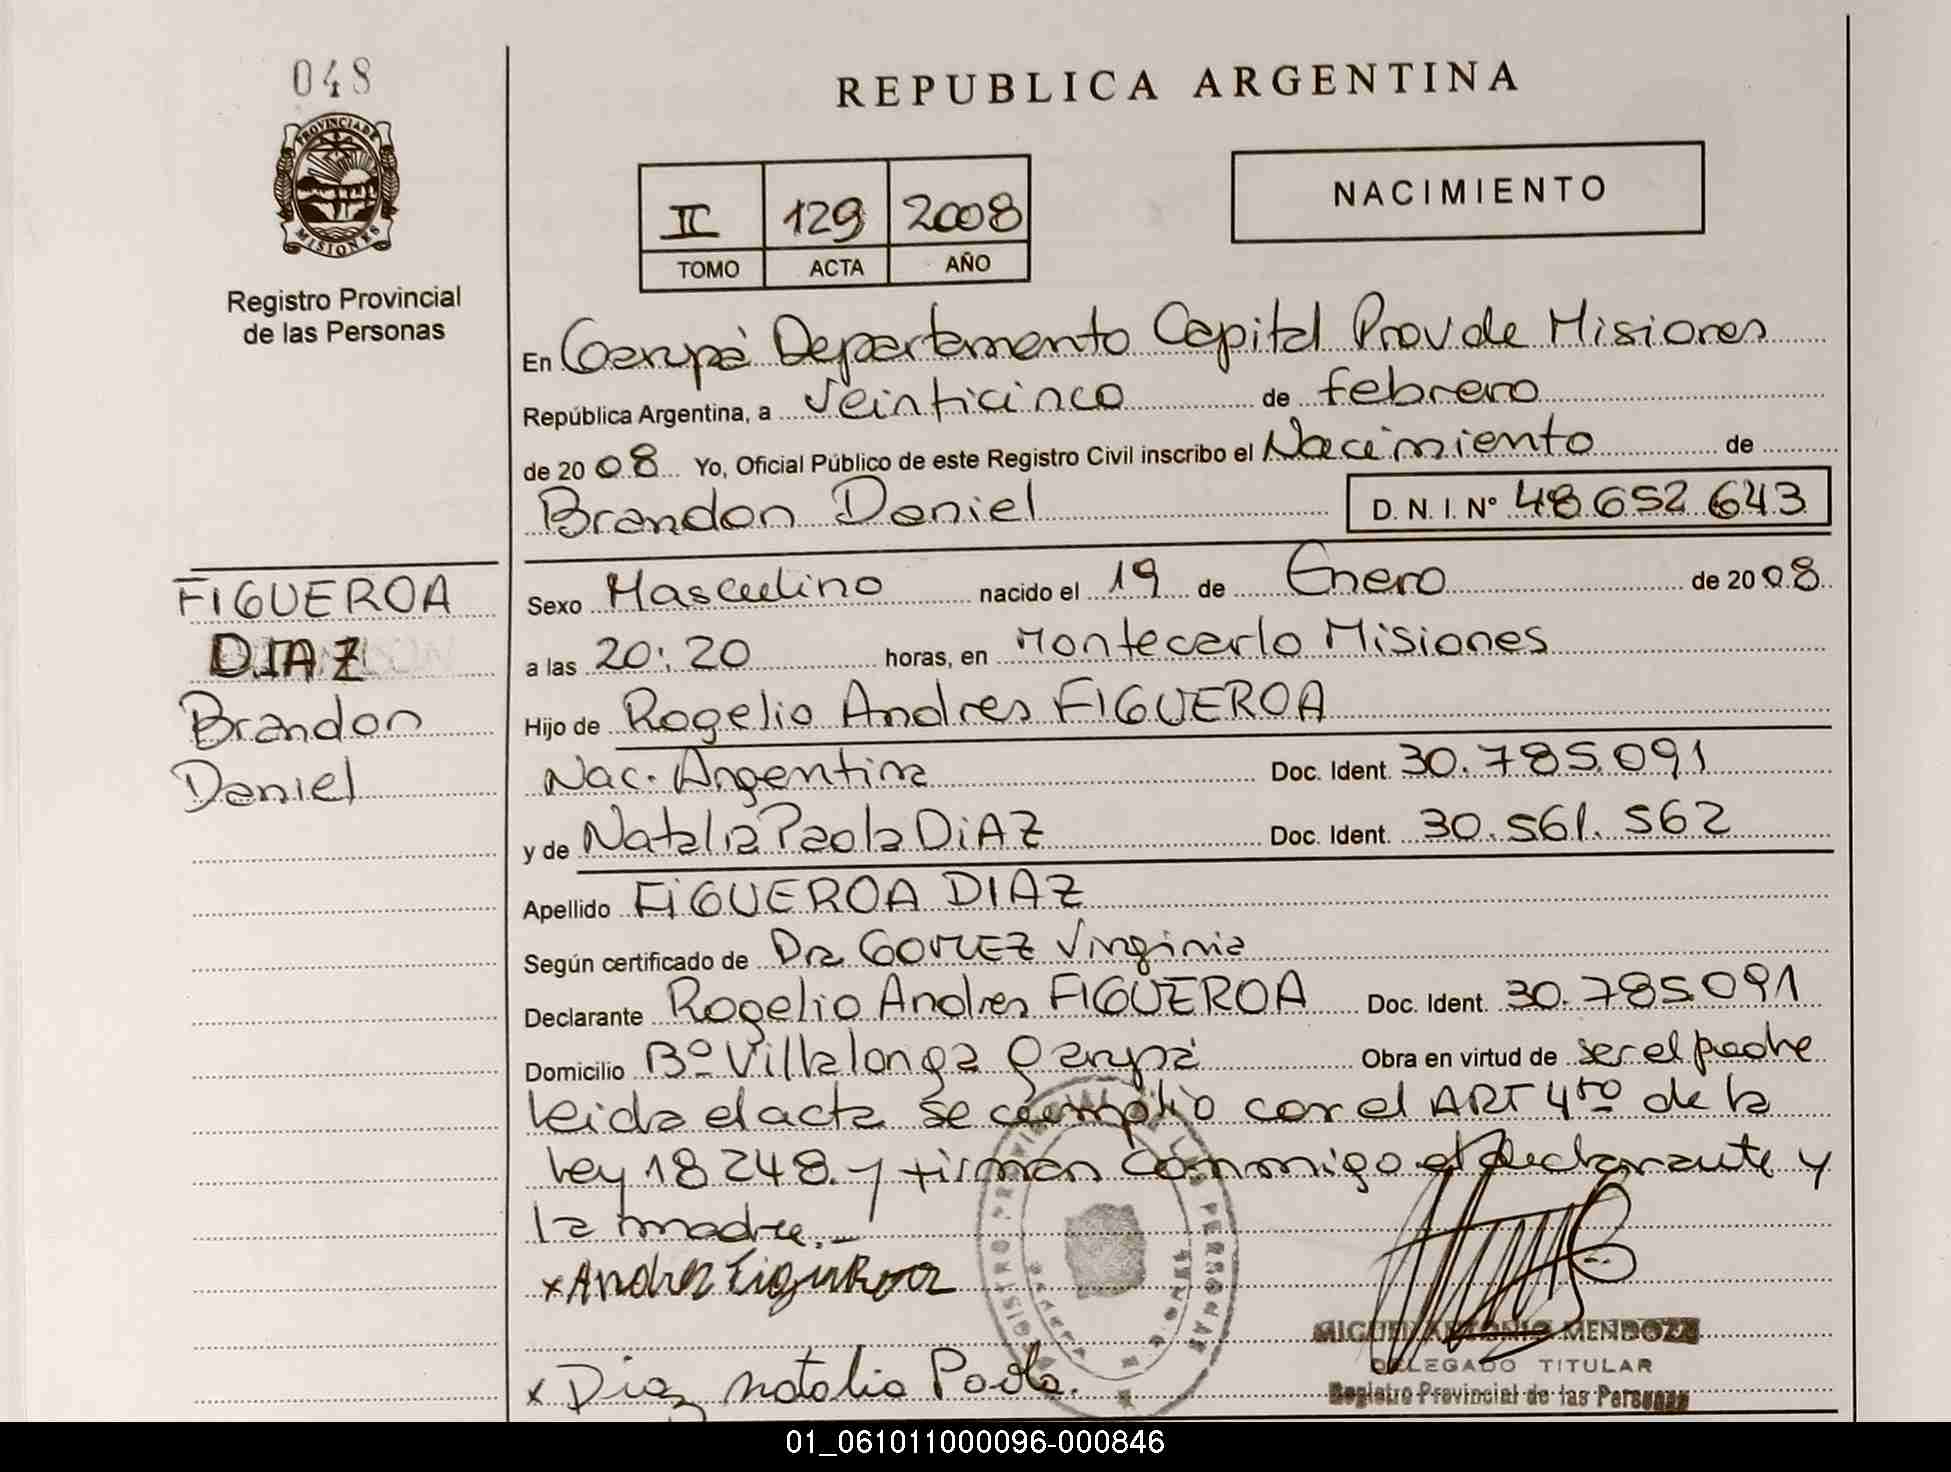 048
PROVINCIA DE
MISIONES
Registro Provincial
de las Personas
REPUBLICA ARGENTINA
II 129 2008
TOMO ACTA AÑO
NACIMIENTO
En Garupá Departamento Capital Prov de Misiones
República Argentina, a veinticinco de febrero
de 2008 Yo, Oficial Público de este Registro Civil inscribo el Nacimiento de
Brandon Daniel D. N. I. Nº 48652643
FIGUEROA
DIAZ
Brandon
Daniel
Sexo Masculino nacido el 19 de Enero de 2008
a las 20:20 horas, en Montecarlo Misiones
Hijo de Rogelio Andres FIGUEROA
Nac. Argentina Doc. Ident. 30.785.091
y de Natalia Paola DiAZ Doc. Ident. 30.561.562
Apellido FiGUEROA DIAZ
Según certificado de Dra GOMEZ Virginia
Declarante Rogelio Andres FIGUEROA Doc. Ident. 30.785.091
Domicilio Bº Villalonga Garupá Obra en virtud de ser el padre
leida el acta se cumplio con el ART 4to de la
Ley 18248. y firman conmigo el declarante y
la madre.-
x Andres Figueroa
x Diaz natalia Paola.
MIGUEL ANTONIO MENDOZA
DELEGADO TITULAR
Registro Provincial de las Personas
01_061011000096-000846